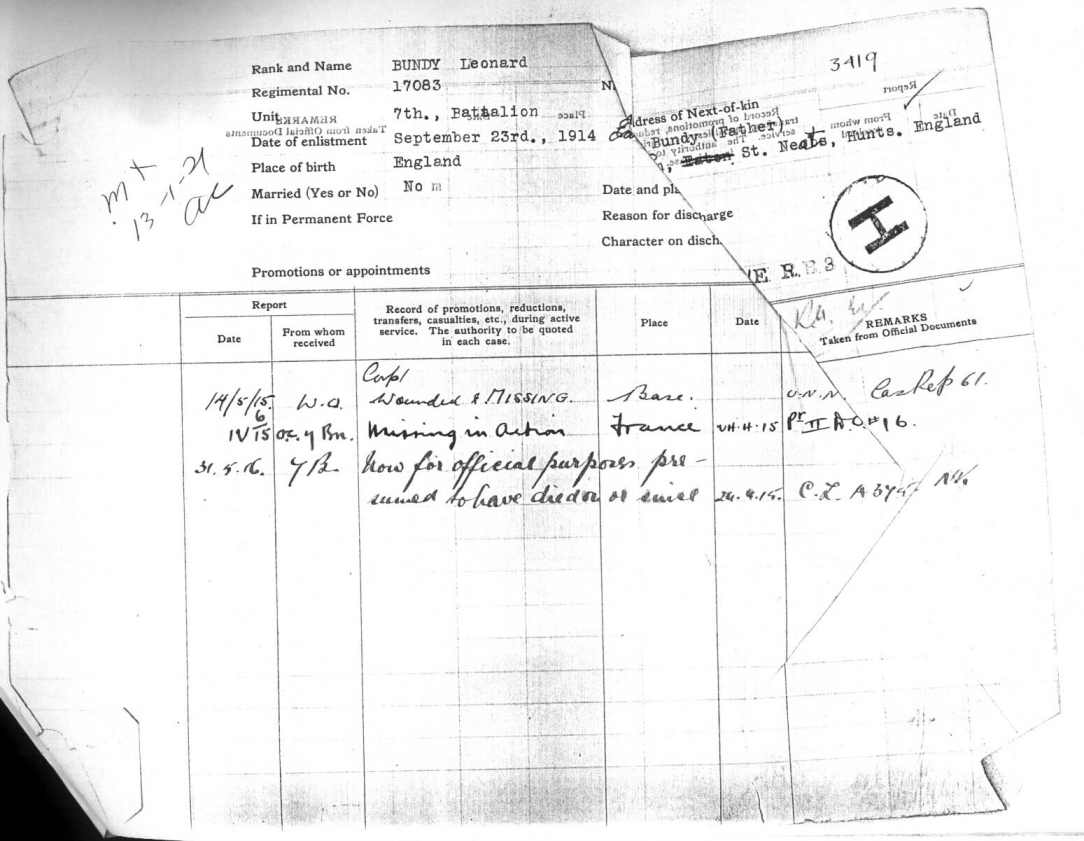 3419
Rank and Name BUNDY Leonard
Regimental No. 17083
Unit 7th., Battalion
Address of Next-of-kin
Date of enlistment September 23rd., 1914
Bundy (Father)
St. Neots, Hunts. England
Place of birth England
Married (Yes or No) No
Date and pla
If in Permanent Force
Reason for discharge
Character on disch
Promotions or appointments
E. R. B. 3
13-1-21
H
Report
Date
From whom received
Record of promotions, reductions,
transfers, casualties, etc., during active
service. The authority to be quoted
in each case.
Place
Date
REMARKS
Taken from Official Documents
Corpl
14/5/15 W.O. Wounded & MISSING. Base. Cas Rep 61.
Missing in Action France
31.5.16. 7 B. Now for official purposes pre-
sumed to have died on or since 24.4.15. C.L. A
Report
Date
From whom
Place
REMARKS
Taken from Official Documents
Record of promotions, redu